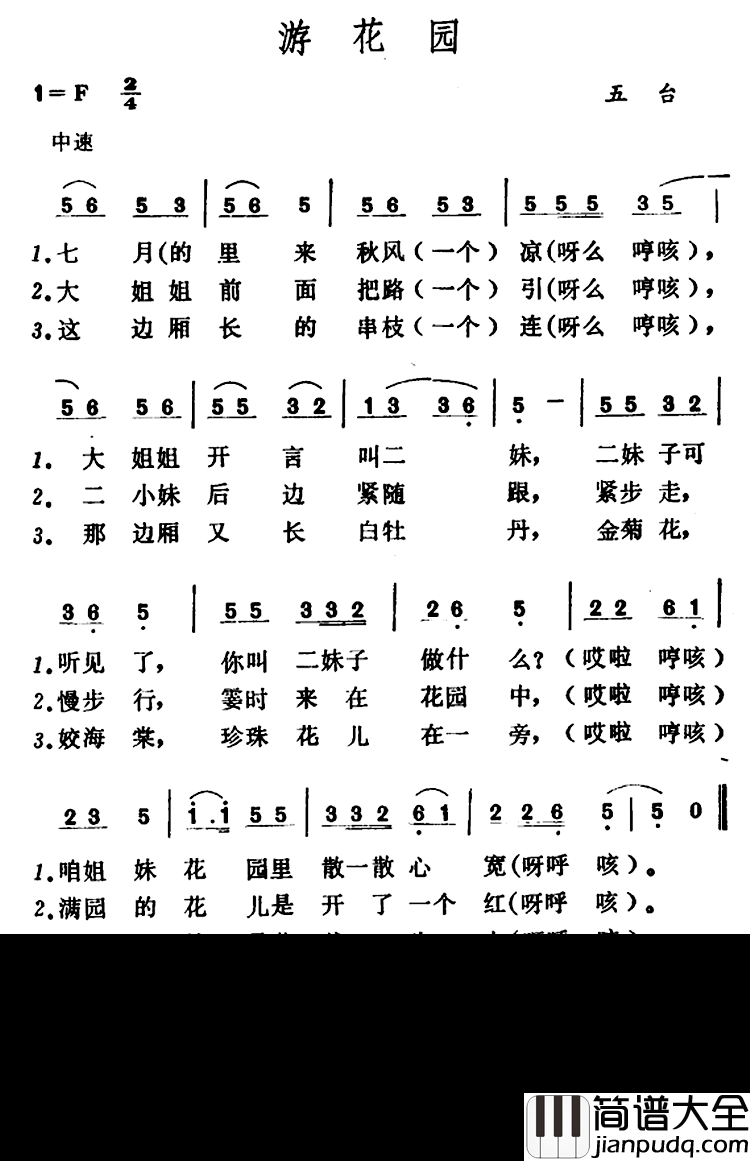 游花园
1=F 2/4 五台
中速
5 6 5 3 | 5 6 5 | 5 6 5 3 | 5 5 5 3 5 |
1.七 月(的 里 来 秋风(一个)凉(呀么 哼咳),
2.大 姐姐 前 面 把路(一个)引(呀么 哼咳),
3.这 边厢 长 的 串枝(一个)连(呀么 哼咳),
5 6 5 6 | 5 5 3 2 | 1 3 3 6 | 5 - | 5 5 3 2 |
1. 大 姐姐 开 言 叫二 妹, 二妹 子可
2. 二 小妹 后 边 紧随 跟, 紧步 走,
3. 那 边厢 又 长 白牡 丹, 金菊 花,
3 6 5 | 5 5 3 3 2 | 2 6 5 | 2 2 6 1 |
1.听见 了, 你叫 二妹子 做什 么?(哎啦 哼咳)
2.慢步 行, 霎时 来 在 花园 中,(哎啦 哼咳)
3.姣海 棠, 珍珠 花 儿 在一 旁,(哎啦 哼咳)
2 3 5 | i . i 5 5 | 3 3 2 6 1 | 2 2 6 5 | 5 0 ‖
1.咱姐 妹 花 园里 散一散 心 宽(呀呼 咳)。
2.满园 的 花 儿是 开 了 一个 红(呀呼 咳)。
简谱大全
jianpudq.com